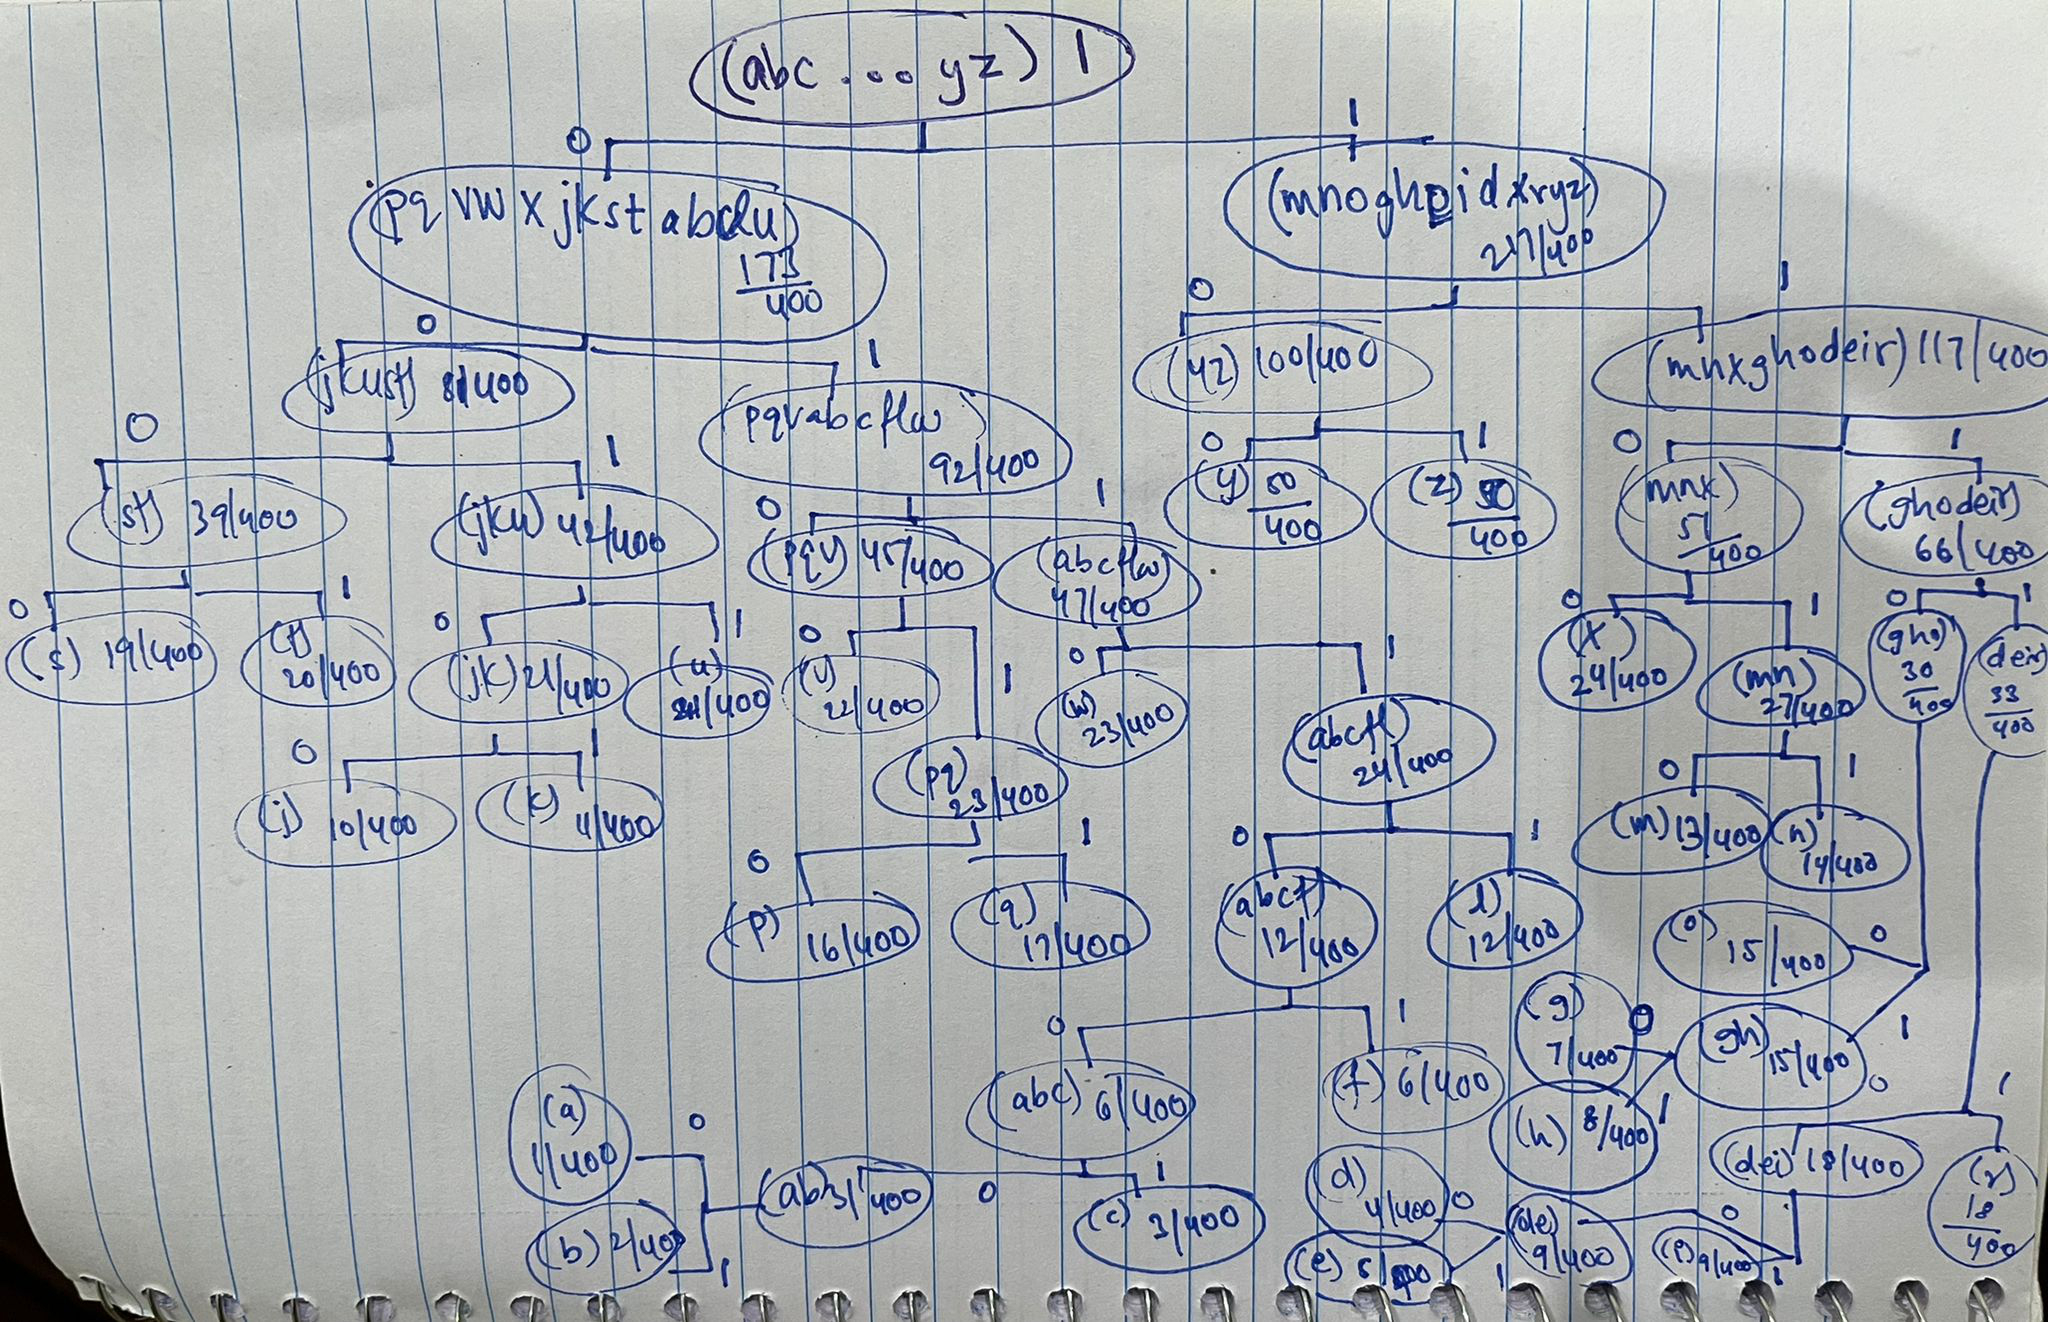 (abc ... yz) 1
0
1
(pq vw x jkst abclu)
173
400
(mnoghpidxryz)
217/400
0
1
0
1
(jkust) 81/400
pqvabcflw)
92/400
(yz) 100/400
(mnxghodeir) 117/400
0
1
0
1
0
1
0
1
(st) 39/400
(jku) 42/400
(pqv) 45/400
(abcflw)
47/400
(y) 50
400
(z) 50
400
(mnx)
51
400
(ghodeir)
66/400
0
1
0
1
0
1
0
1
0
1
0
1
(s) 19/400
(t)
20/400
(jk) 21/400
(u)
21/400
(v)
22/400
(w)
23/400
(x)
24/400
(mn)
27/400
(gho)
30
400
(deir)
33
400
(pq)
23/400
(abcfl)
24/400
0
1
0
1
0
1
0
1
(j) 10/400
(k) 11/400
(p)
16/400
(q)
17/400
(abcf)
12/400
(l)
12/400
(m) 13/400
(n)
14/400
(o)
15/400
0
0
1
(g)
7/400
0
(gh)
15/400
1
(abc) 6/400
(f) 6/400
(h) 8/400
1
0
1
(a)
1/400
0
(ab) 3/400
0
1
(c) 3/400
(b) 2/400
1
(d)
4/400
0
(de)
9/400
0
(dei) 18/400
(r)
18
400
(e) 5/400
1
(i) 9/400
1